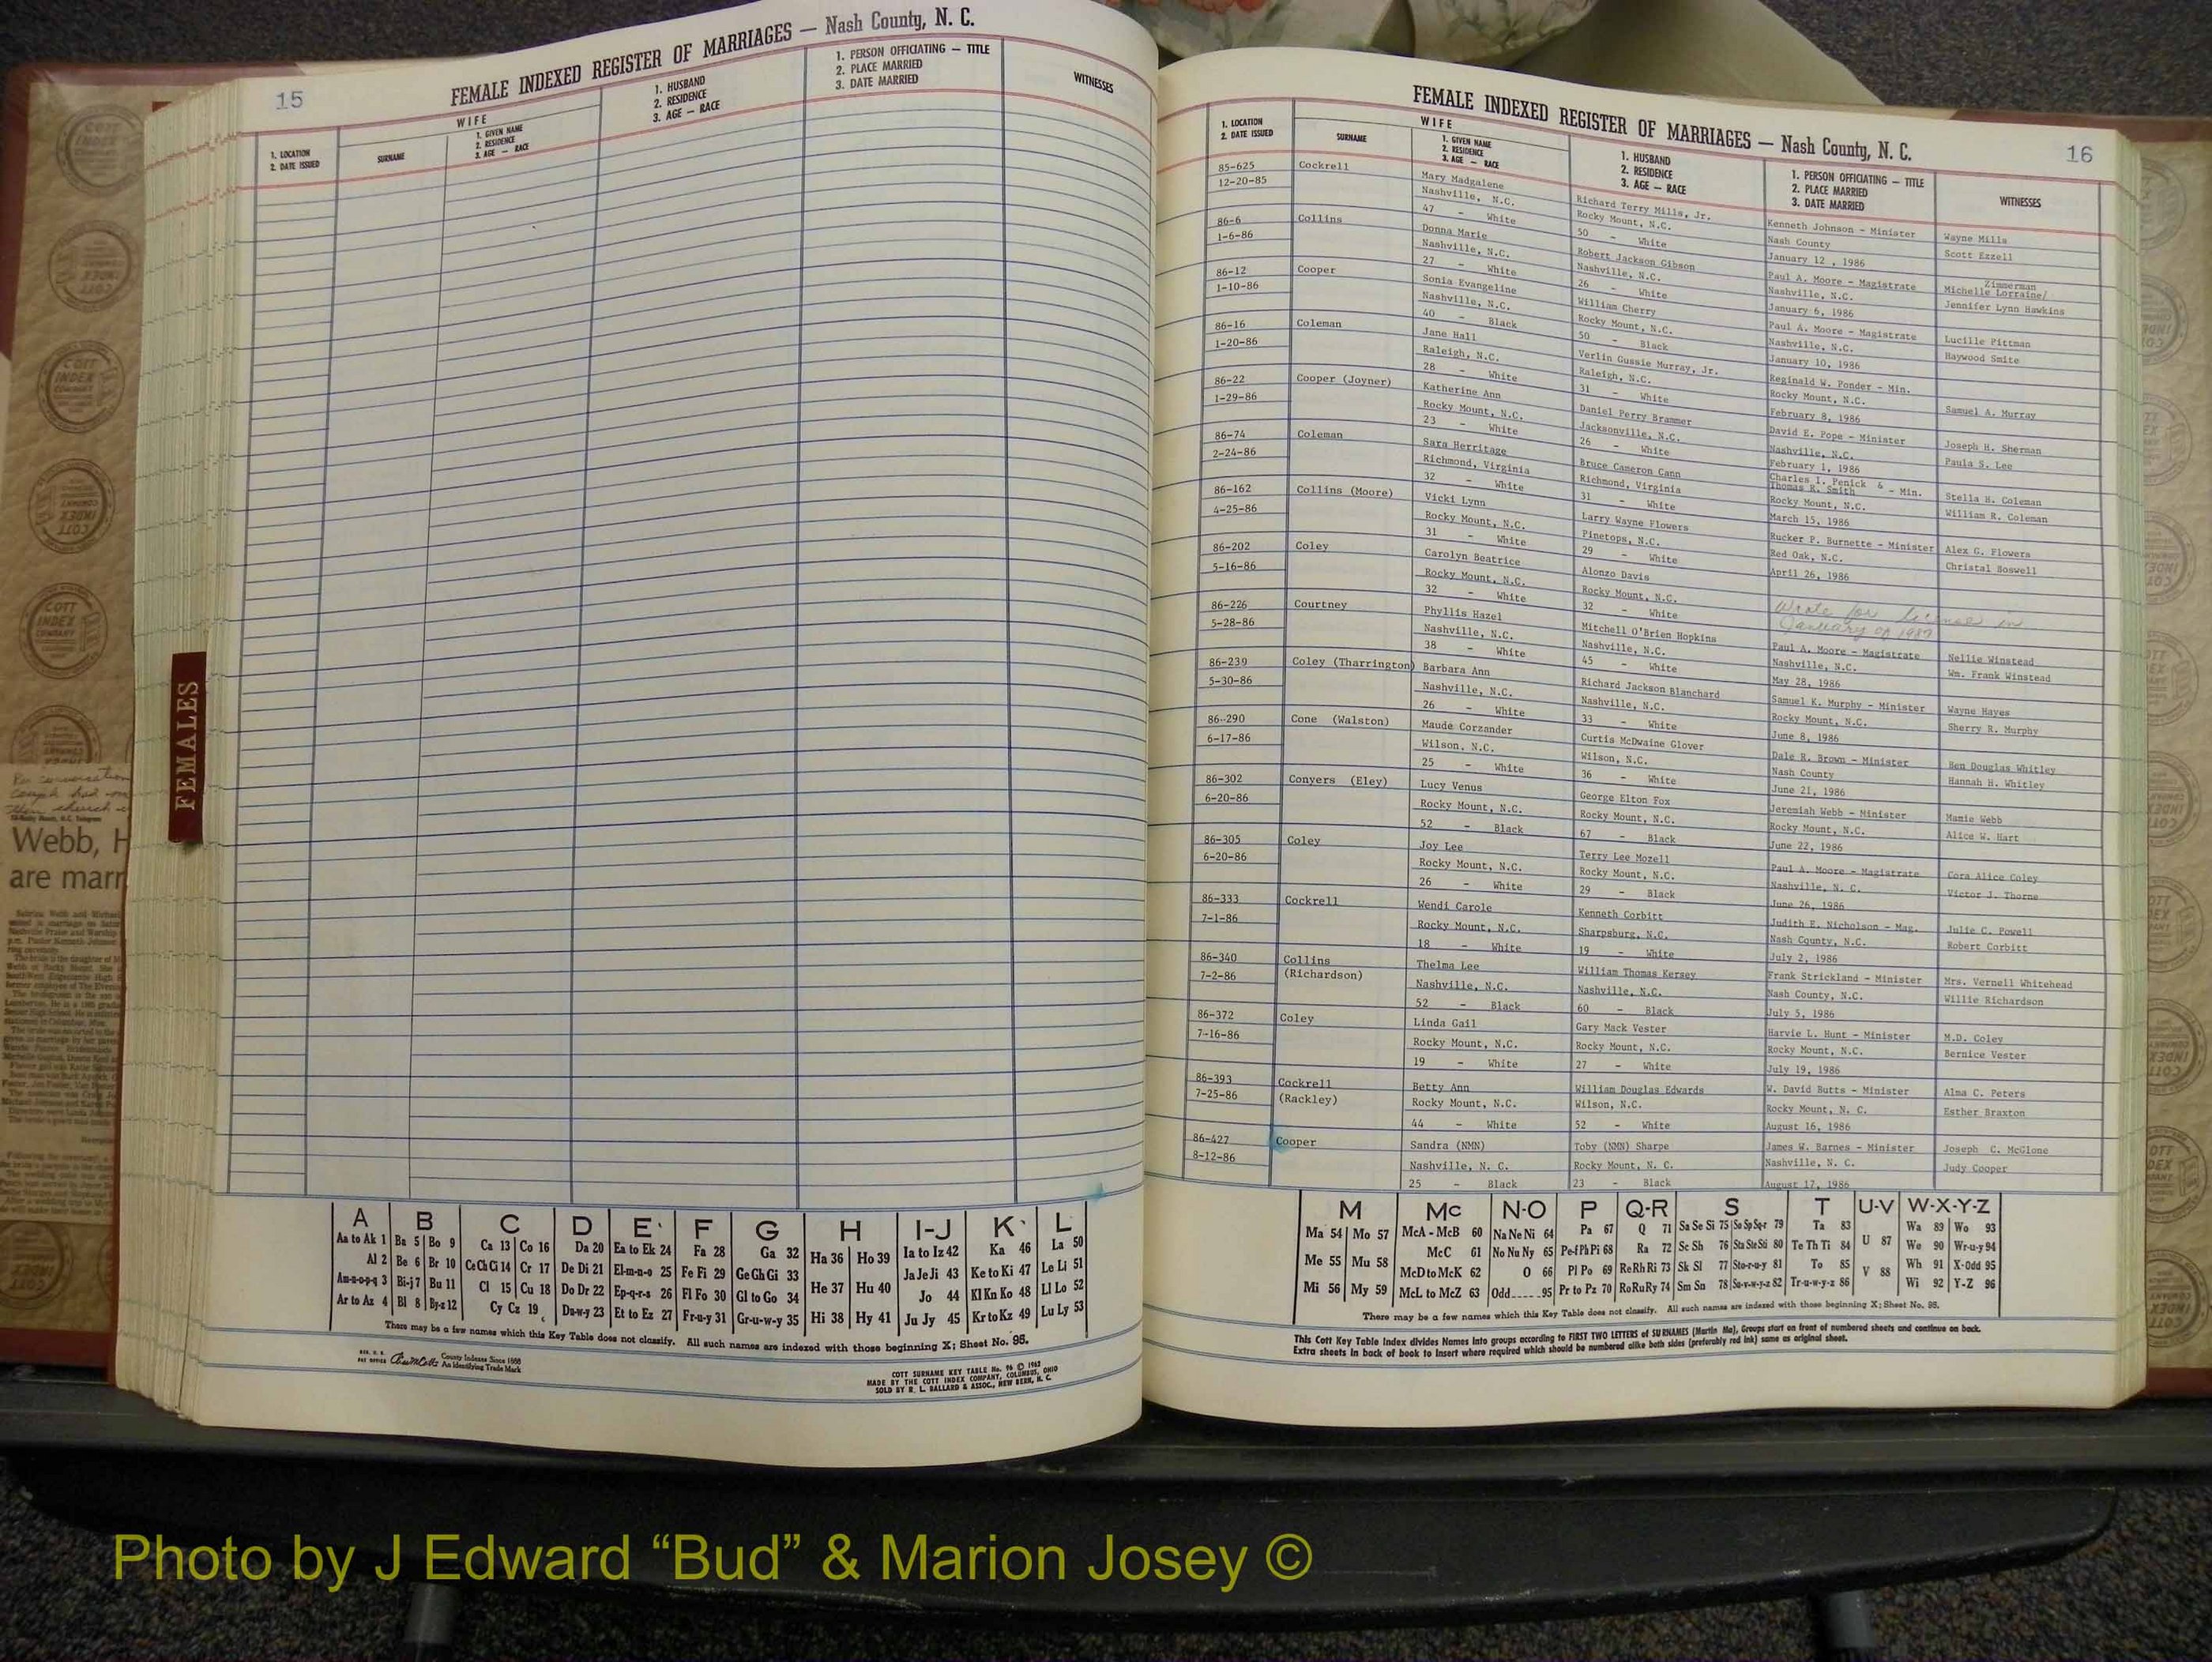 15
FEMALE INDEXED REGISTER OF MARRIAGES — Nash County, N. C.
1. LOCATION
2. DATE ISSUED
WIFE
SURNAME
1. GIVEN NAME
2. RESIDENCE
3. AGE — RACE
1. HUSBAND
2. RESIDENCE
3. AGE — RACE
1. PERSON OFFICIATING — TITLE
2. PLACE MARRIED
3. DATE MARRIED
WITNESSES
FEMALES
Webb, H
are marr
A B C D E F G H I-J K L
Aa to Ak 1 Ba 5 Bo 9 Ca 13 Co 16 Da 20 Ea to Ek 24 Fa 28 Ga 32 Ha 36 Ho 39 Ia to Iz 42 Ka 46 La 50
Al 2 Be 6 Br 10 Ce Ch Ci 14 Cr 17 De Di 21 El-m-n-o 25 Fe Fi 29 Ge Gh Gi 33 He 37 Hu 40 Ja Je Ji 43 Ke to Ki 47 Le Li 51
Am-n-o-p-q 3 Bi-j 7 Bu 11 Cl 15 Cu 18 Do Dr 22 Ep-q-r-s 26 Fl Fo 30 Gl to Go 34 Jo 44 Kl Kn Ko 48 Ll Lo 52
Ar to Az 4 Bl 8 By-z 12 Cy Cz 19 Du-w-y 23 Et to Ez 27 Fr-u-y 31 Gr-u-w-y 35 Hi 38 Hy 41 Ju Jy 45 Kr to Kz 49 Lu Ly 53
There may be a few names which this Key Table does not classify. All such names are indexed with those beginning X; Sheet No. 95.
County Indexes Since 1888
An Identifying Trade Mark
COTT SURNAME KEY TABLE No. 96 © 1962
MADE BY THE COTT INDEX COMPANY, COLUMBUS, OHIO
SOLD BY R. L. BALLARD & ASSOC., NEW BERN, N. C.
FEMALE INDEXED REGISTER OF MARRIAGES — Nash County, N. C.
16
1. LOCATION
2. DATE ISSUED
WIFE
SURNAME
1. GIVEN NAME
2. RESIDENCE
3. AGE — RACE
1. HUSBAND
2. RESIDENCE
3. AGE — RACE
1. PERSON OFFICIATING — TITLE
2. PLACE MARRIED
3. DATE MARRIED
WITNESSES
85-625 Cockrell Mary Madgalene Richard Terry Mills, Jr. Kenneth Johnson - Minister Wayne Mills
12-20-85 Nashville, N.C. Rocky Mount, N.C. Nash County Scott Ezzell
47 - White 50 - White January 12 , 1986
86-6 Collins Donna Marie Robert Jackson Gibson Paul A. Moore - Magistrate Michelle Lorraine/ Zimmerman
1-6-86 Nashville, N.C. Nashville, N.C. Nashville, N.C. Jennifer Lynn Hawkins
27 - White 26 - White January 6, 1986
86-12 Cooper Sonia Evangeline William Cherry Paul A. Moore - Magistrate Lucille Pittman
1-10-86 Nashville, N.C. Rocky Mount, N.C. Nashville, N.C. Haywood Smite
40 - Black 50 - Black January 10, 1986
86-16 Coleman Jane Hall Verlin Gussie Murray, Jr. Reginald W. Ponder - Min.
1-20-86 Raleigh, N.C. Raleigh, N.C. Rocky Mount, N.C. Samuel A. Murray
28 - White 31 - White February 8, 1986
86-22 Cooper (Joyner) Katherine Ann Daniel Perry Brammer David E. Pope - Minister Joseph H. Sherman
1-29-86 Rocky Mount, N.C. Jacksonville, N.C. Nashville, N.C. Paula S. Lee
23 - White 26 - White February 1, 1986
86-74 Coleman Sara Herritage Bruce Cameron Cann Charles I. Penick & Thomas R. Smith - Min. Stella H. Coleman
2-24-86 Richmond, Virginia Richmond, Virginia Rocky Mount, N.C. William R. Coleman
32 - White 31 - White March 15, 1986
86-162 Collins (Moore) Vicki Lynn Larry Wayne Flowers Rucker P. Burnette - Minister Alex G. Flowers
4-25-86 Rocky Mount, N.C. Pinetops, N.C. Red Oak, N.C. Christal Boswell
31 - White 29 - White April 26, 1986
86-202 Coley Carolyn Beatrice Alonzo Davis Wrote for license in
5-16-86 Rocky Mount, N.C. Rocky Mount, N.C. January of 1987
32 - White 32 - White
86-226 Courtney Phyllis Hazel Mitchell O'Brien Hopkins Paul A. Moore - Magistrate Nellie Winstead
5-28-86 Nashville, N.C. Nashville, N.C. Nashville, N.C. Wm. Frank Winstead
38 - White 45 - White May 28, 1986
86-239 Coley (Tharrington) Barbara Ann Richard Jackson Blanchard Samuel K. Murphy - Minister Wayne Hayes
5-30-86 Nashville, N.C. Nashville, N.C. Rocky Mount, N.C. Sherry R. Murphy
26 - White 33 - White June 8, 1986
86-290 Cone (Walston) Maude Corzander Curtis McDwaine Glover Dale R. Brown - Minister Ben Douglas Whitley
6-17-86 Wilson, N.C. Wilson, N.C. Nash County Hannah H. Whitley
25 - White 36 - White June 21, 1986
86-302 Conyers (Eley) Lucy Venus George Elton Fox Jeremiah Webb - Minister Mamie Webb
6-20-86 Rocky Mount, N.C. Rocky Mount, N.C. Rocky Mount, N.C. Alice W. Hart
52 - Black 67 - Black June 22, 1986
86-305 Coley Joy Lee Terry Lee Mozell Paul A. Moore - Magistrate Cora Alice Coley
6-20-86 Rocky Mount, N.C. Rocky Mount, N.C. Nashville, N. C. Victor J. Thorne
26 - White 29 - Black June 26, 1986
86-333 Cockrell Wendi Carole Kenneth Corbitt Judith E. Nicholson - Mag. Julie C. Powell
7-1-86 Rocky Mount, N.C. Sharpsburg, N.C. Nash County, N.C. Robert Corbitt
18 - White 19 - White July 2, 1986
86-340 Collins Thelma Lee William Thomas Kersey Frank Strickland - Minister Mrs. Vernell Whitehead
7-2-86 (Richardson) Nashville, N.C. Nashville, N.C. Nash County, N.C. Willie Richardson
52 - Black 60 - Black July 5, 1986
86-372 Coley Linda Gail Gary Mack Vester Harvie L. Hunt - Minister M.D. Coley
7-16-86 Rocky Mount, N.C. Rocky Mount, N.C. Rocky Mount, N.C. Bernice Vester
19 - White 27 - White July 19, 1986
86-393 Cockrell Betty Ann William Douglas Edwards W. David Butts - Minister Alma C. Peters
7-25-86 (Rackley) Rocky Mount, N.C. Wilson, N.C. Rocky Mount, N. C. Esther Braxton
44 - White 52 - White August 16, 1986
86-427 Cooper Sandra (NMN) Toby (NMN) Sharpe James W. Barnes - Minister Joseph C. McGlone
8-12-86 Nashville, N. C. Rocky Mount, N. C. Nashville, N. C. Judy Cooper
25 - Black 23 - Black August 17, 1986
M Mc N-O P Q-R S T U-V W-X-Y-Z
Ma 54 Mo 57 McA - McB 60 Na Ne Ni 64 Pa 67 Q 71 Sa Se Si 75 So Sp Sq-r 79 Ta 83 U 87 Wa 89 Wo 93
Me 55 Mu 58 McC 61 No Nu Ny 65 Pe-f Ph Pi 68 Ra 72 Sc Sh 76 Sta Ste Sti 80 Te Th Ti 84 We 90 Wr-u-y 94
McD to McK 62 O 66 Pl Po 69 Re Rh Ri 73 Sk Sl 77 Sto-r-u-y 81 To 85 V 88 Wh 91 X-Odd 95
Mi 56 My 59 McL to McZ 63 Odd.....95 Pr to Pz 70 Ro Ru Ry 74 Sm Sn 78 Su-v-w-y-z 82 Tr-u-w-y-z 86 Wi 92 Y-Z 96
There may be a few names which this Key Table does not classify. All such names are indexed with those beginning X; Sheet No. 95.
This Cott Key Table Index divides Names into groups according to FIRST TWO LETTERS of SURNAMES (Martin Ma), Groups start on front of numbered sheets and continue on back.
Extra sheets in back of book to insert where required which should be numbered alike both sides (preferably red ink) same as original sheet.
Photo by J Edward “Bud” & Marion Josey ©